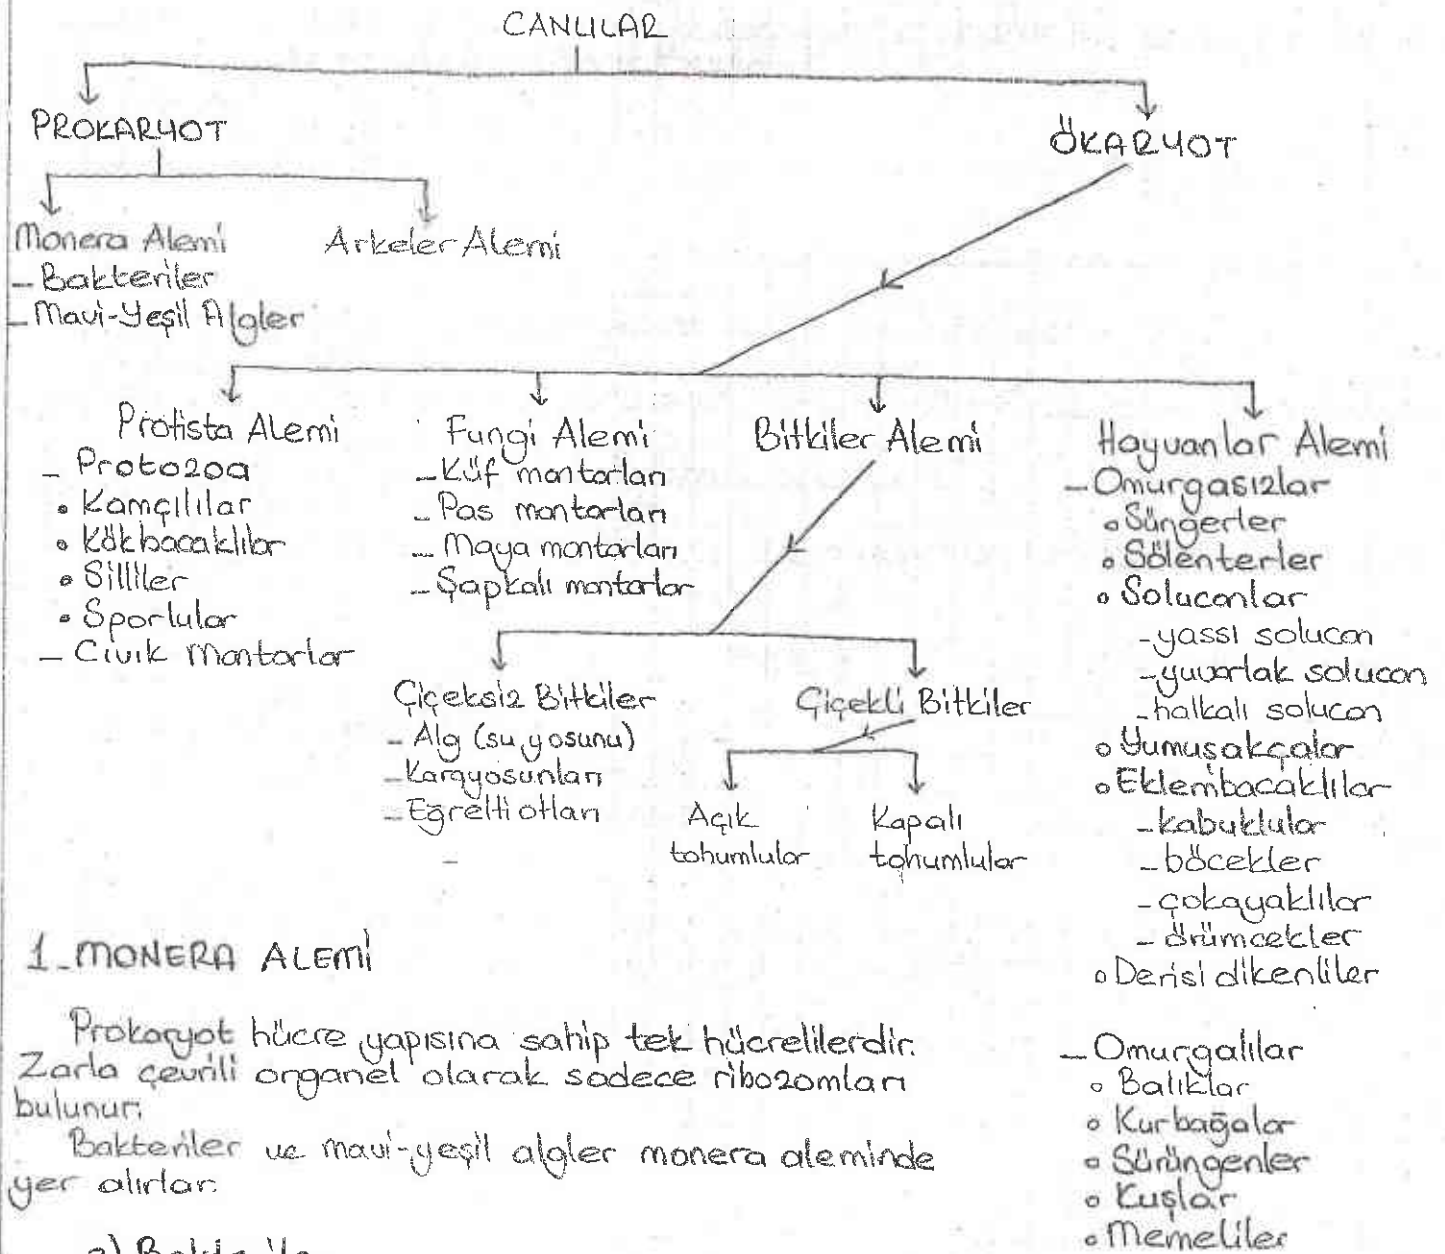 CANLILAR
PROKARYOT
ÖKARYOT
Monera Alemi
Arkeler Alemi
- Bakteriler
- Mavi-Yeşil Algler
Protista Alemi
- Protozoa
• Kamçılılar
• Kökbacaklılar
• Silliler
• Sporlular
- Cıvık Mantarlar
Fungi Alemi
- Küf mantarları
- Pas mantarları
- Maya mantarları
- Şapkalı mantarlar
Bitkiler Alemi
Çiçeksiz Bitkiler
- Alg (su yosunu)
- Karayosunları
- Eğrelti otları
-
Çiçekli Bitkiler
Açık
tohumlular
Kapalı
tohumlular
Hayvanlar Alemi
- Omurgasızlar
• Süngerler
• Sölenterler
• Solucanlar
- yassı solucan
- yuvarlak solucan
- halkalı solucan
• Yumuşakçalar
• Eklembacaklılar
- kabuklular
- böcekler
- çokayaklılar
- örümcekler
• Derisi dikenliler
- Omurgalılar
• Balıklar
• Kurbağalar
• Sürüngenler
• Kuşlar
• Memeliler
1- MONERA ALEMİ
Prokaryot hücre yapısına sahip tek hücrelilerdir.
Zarla çevrili organel olarak sadece ribozomları
bulunur.
Bakteriler ve mavi-yeşil algler monera aleminde
yer alırlar.